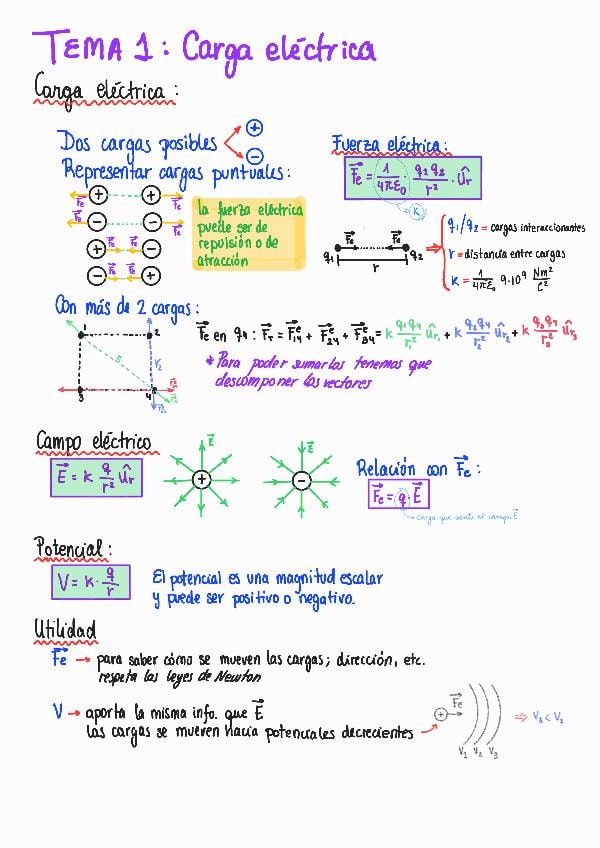 TEMA 1: Carga eléctrica
Carga eléctrica:
Dos cargas posibles + −
Representar cargas puntuales:
+ + Fe Fe
− − Fe Fe
+ − Fe Fe
− + Fe Fe
la fuerza eléctrica
puede ser de
repulsión o de
atracción
Fuerza eléctrica:
Fe = 1/4πε₀ · q₁q₂/r² · ûr
K
Fe Fe
q₁ r q₂
q₁/q₂ = cargas interaccionantes
r = distancia entre cargas
K = 1/4πε₀ 9·10⁹ Nm²/C²
Con más de 2 cargas:
1 2
3 4
Fe en q₄ : Fr = Fe14 + Fe24 + Fe34 = K q₁q₄/r₁² ûr₁ + K q₂q₄/r₂² ûr₂ + K q₃q₄/r₃² ûr₃
* Para poder sumarlas tenemos que
descomponer los vectores
Campo eléctrico
E = K q/r² ûr
E
+
E
−
Relación con Fe:
Fe = q · E
carga que siente el campo E
Potencial:
V = K · q/r
El potencial es una magnitud escalar
y puede ser positivo o negativo.
Utilidad
Fe → para saber cómo se mueven las cargas; dirección, etc.
respeta las leyes de Newton
V → aporta la misma info. que E
las cargas se mueven hacia potenciales decrecientes
+ Fe
V₁ V₂ V₃
⇒ V₃ < V₁